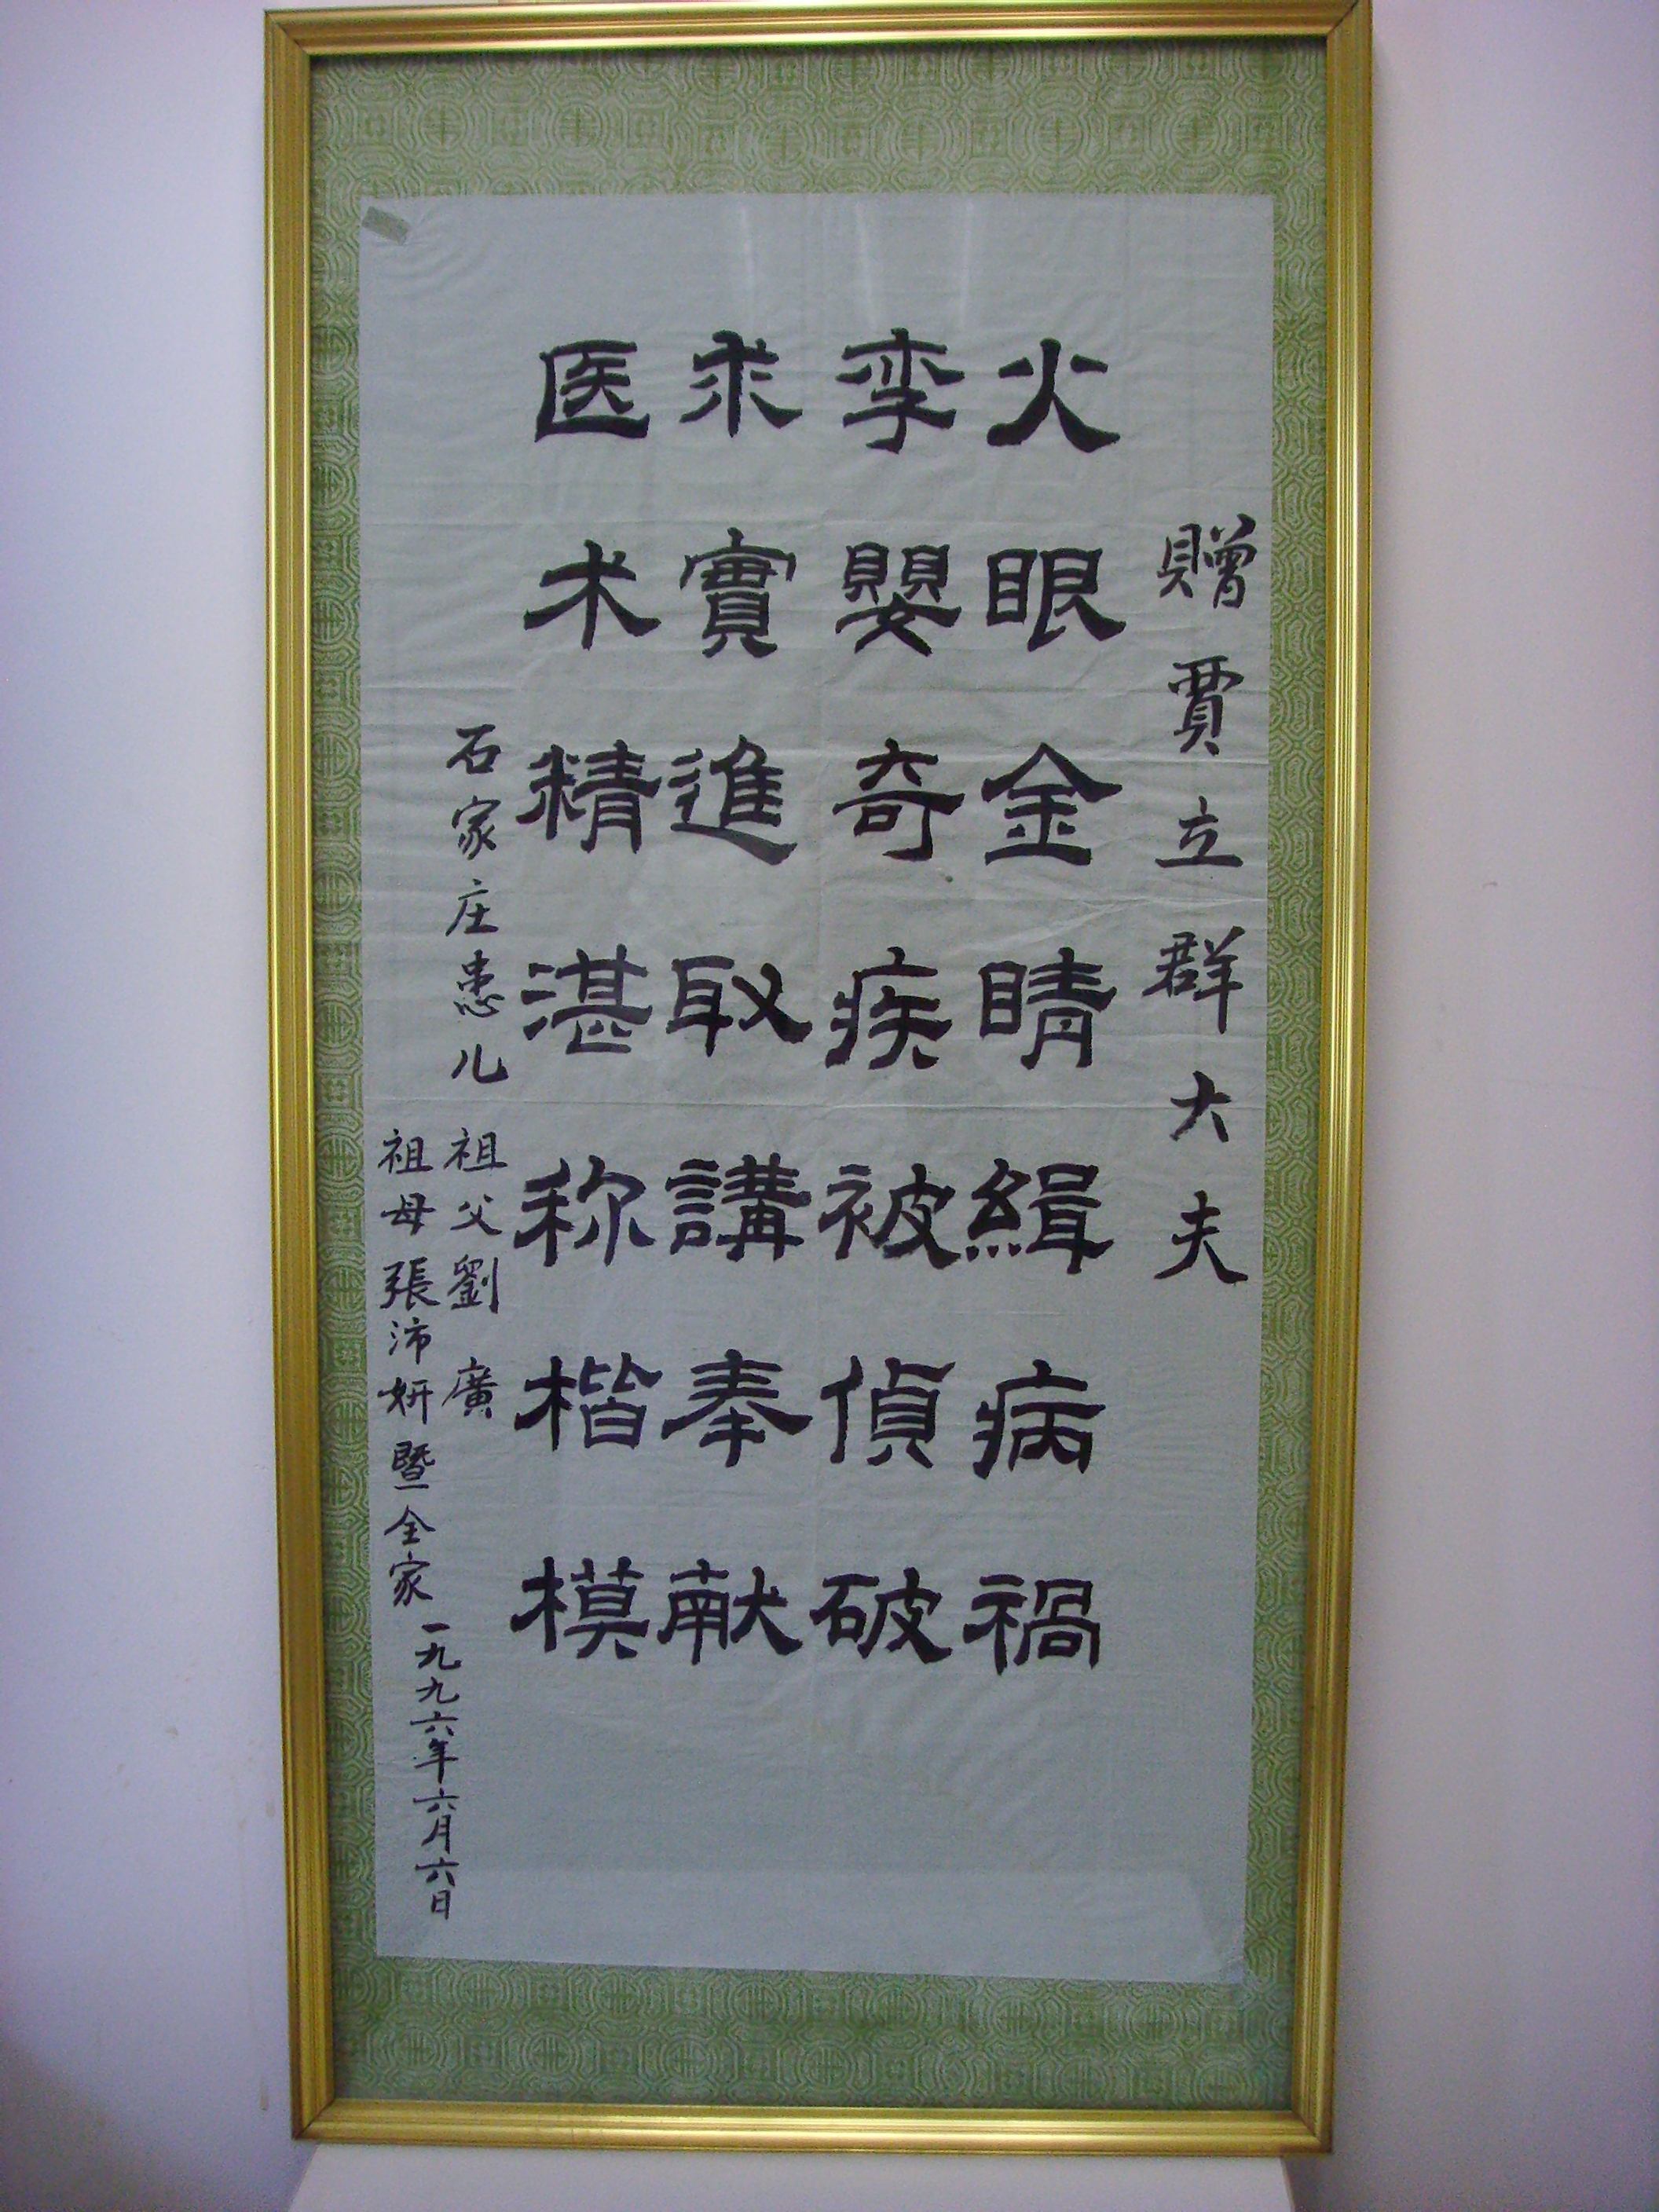 贈賈立群大夫
火眼金睛緝病禍
孪嬰奇疾被偵破
求實進取講奉献
医术精湛称楷模
石家庄患儿
祖父劉廣
祖母張沛妍暨全家
一九九六年六月六日